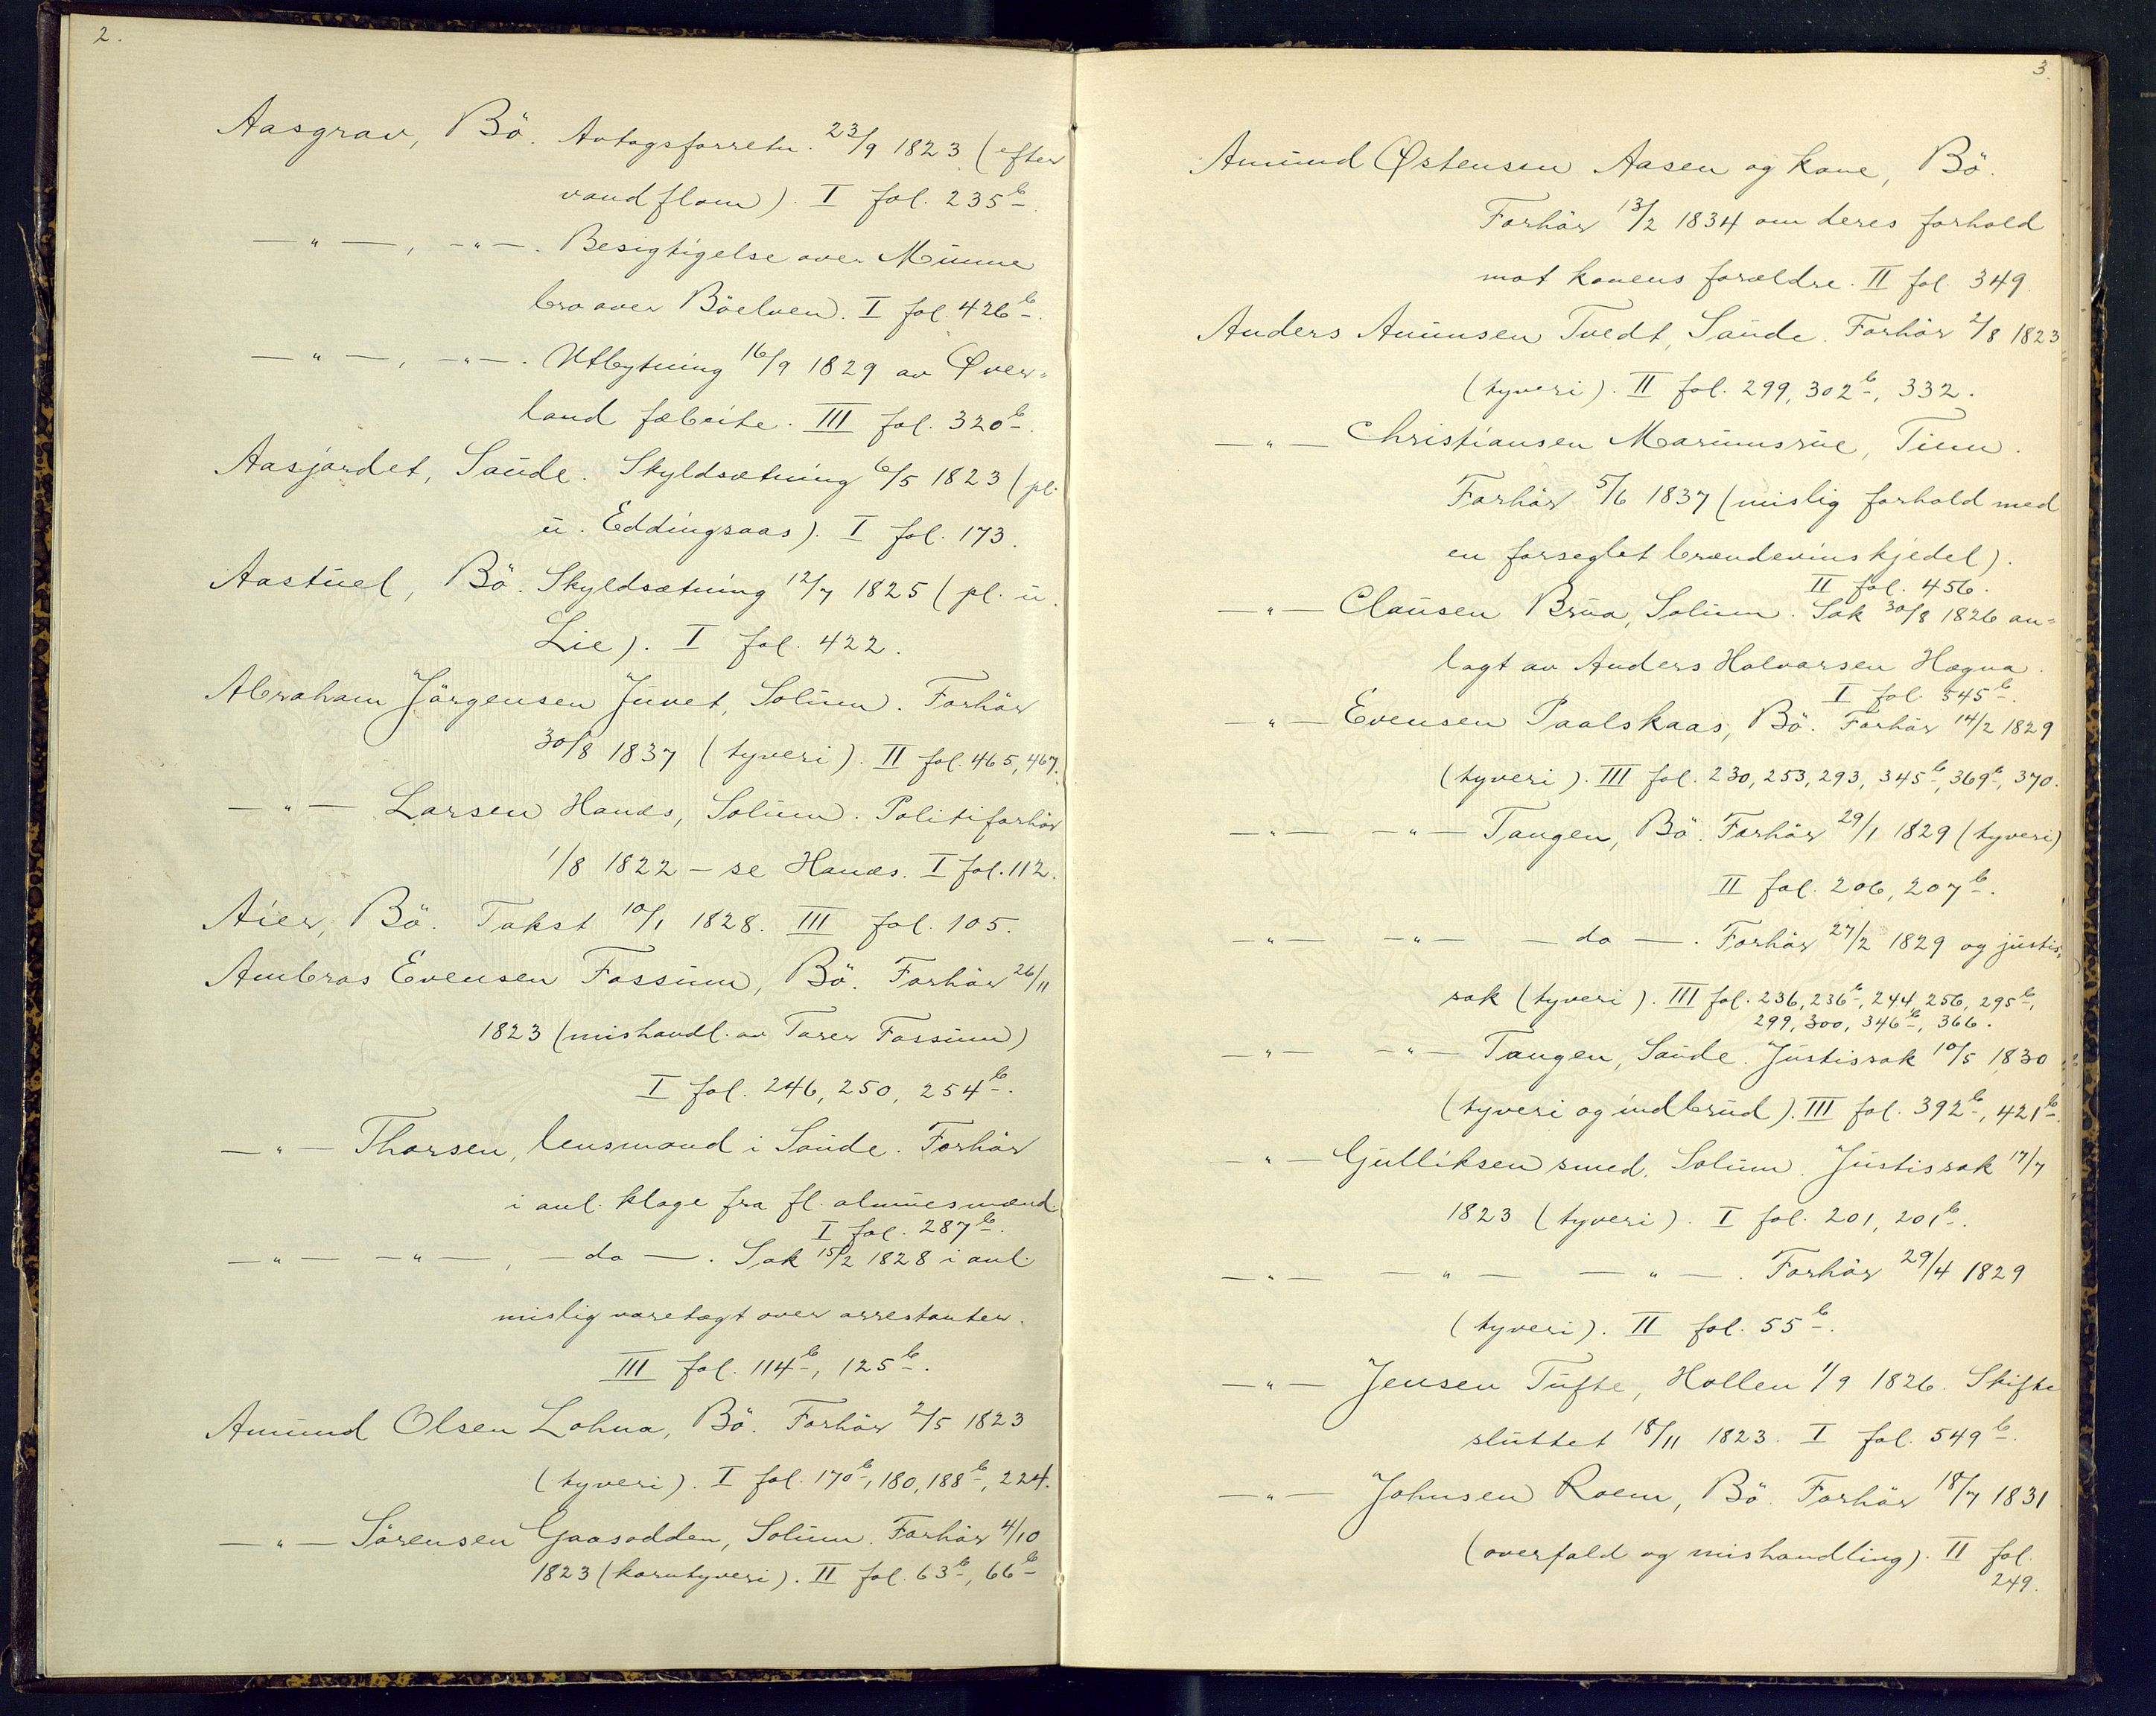 2.
Aasgrav, Bö. Avtagsforretn. 23/9 1823 (efter
vandflom). I fol. 235b.
— " —, — " —. Besigtigelse over Munne
bro over Böelven. I fol. 426b.
— " —, — " —. Utbytning 16/9 1829 av Øver-
land fæbeite. III fol. 320b.
Aasjordet, Saude. Skyldsætning 6/5 1823 (pl.
u. Eddingsaas). I fol. 173.
Aastuel, Bö. Skyldsætning 12/7 1825 (pl. u.
Lie). I fol. 422.
Abraham Jörgensen Juvet, Solum. Forhör
30/8 1837 (tyveri). II fol. 465, 467.
— " — Larsen Hanæs, Solum. Politiforhör
1/8 1822 – se Hanæs. I fol. 112.
Aier, Bö. Takst 10/1 1828. III fol. 105.
Ambros Evensen Fossum, Bö. Forhör 26/11
1823 (mishandl. av Tarer Fossum)
I fol. 246, 250, 254b.
— " — Thorsen, lensmand i Saude. Forhör
i anl. klage fra fl. almuesmænd.
I fol. 287b.
— " — — " —, — do —. Sak 15/2 1828 i anl.
mislig varetægt over arrestanter.
III fol. 114b, 125b.
Amund Olsen Lohna, Bö. Forhör 2/5 1823
(tyveri). I fol. 170b, 180, 188b, 224.
— " — Sörensen Gaasodden, Solum. Forhör 4/10
1823 (korntyveri). II fol. 63b, 66b
3.
Amund Østensen Aasen og kone, Bö.
Forhör 13/2 1834 om deres forhold
mot konens forældre. II fol. 349.
Anders Amunsen Tvedt, Saude. Forhör 2/8 1823
(tyveri). II fol. 299, 302b, 332.
— " — Christiansen Marumsrue, Tinn.
Forhör 5/6 1837 (mislig forhold med
en forseglet brændevinskjedel).
II fol. 456.
— " — Clausen Brua, Solum. Sak 30/8 1826 an-
lagt av Anders Halvorsen Hægna.
I fol. 545b.
— " — Evensen Paalskaas, Bö. Forhör 14/2 1829
(tyveri). III fol. 230, 253, 293, 345b, 369b, 370.
— " — — " — Tangen, Bö. Forhör 29/1 1829 (tyveri)
II fol. 206, 207b.
— " — — " — — do —. Forhör 27/2 1829 og justis-
sak (tyveri). III fol. 236, 236b, 244, 256, 295b,
299, 300, 346b, 366.
— " — — " — Tangen, Saude. Justissak 10/5 1830
(tyveri og indbrud). III fol. 392b, 421b.
— " — Gulliksen smed, Solum. Justissak 17/7
1823 (tyveri). I fol. 201, 201b.
— " — — " — — " —. Forhör 29/4 1829
(tyveri). II fol. 55b.
— " — Jensen Tufte, Hollen 1/9 1826. Skifte
sluttet 18/11 1823. I fol. 549b.
— " — Johnsen Roem, Bö. Forhör 18/7 1831
(overfald og mishandling). II fol.
249.